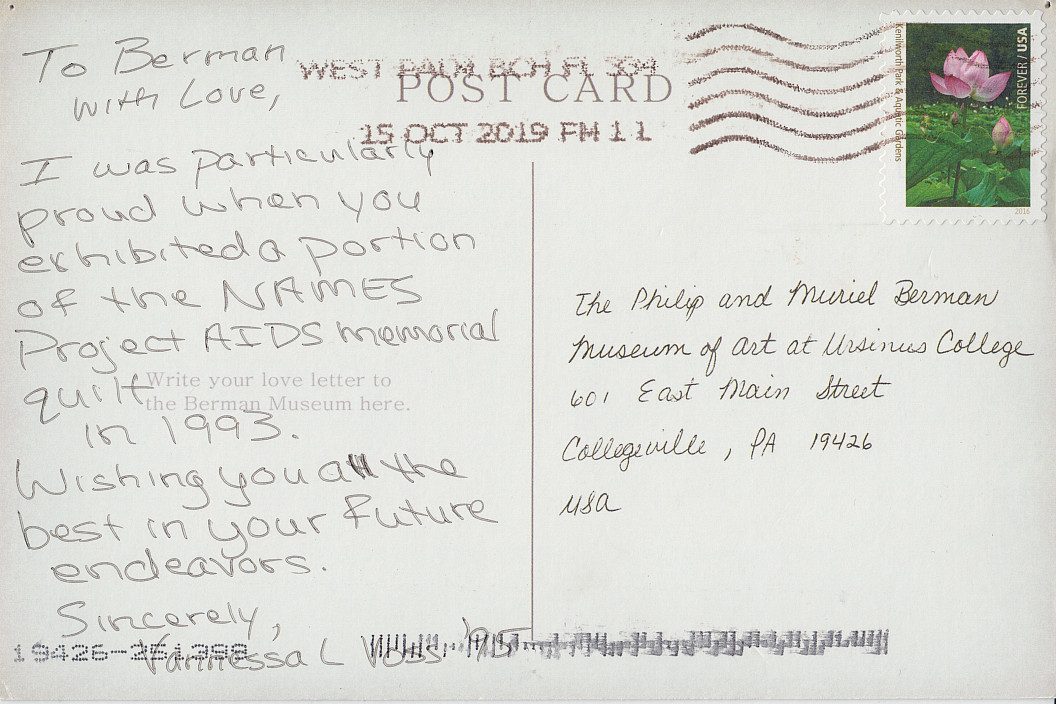 To Berman
with Love,
I was particularly
proud when you
exhibited a portion
of the NAMES
Project AIDS memorial
quilt
in 1993.
Wishing you all the
best in your future
endeavors.
Sincerely,
Vannessa L Voss '95
Write your love letter to
the Berman Museum here.
WEST PALM BCH FL 334
POST CARD
15 OCT 2019 PM 11
Kenilworth Park & Aquatic Gardens
FOREVER / USA
2016
The Philip and Muriel Berman
Museum of Art at Ursinus College
601 East Main Street
Collegeville, PA 19426
USA